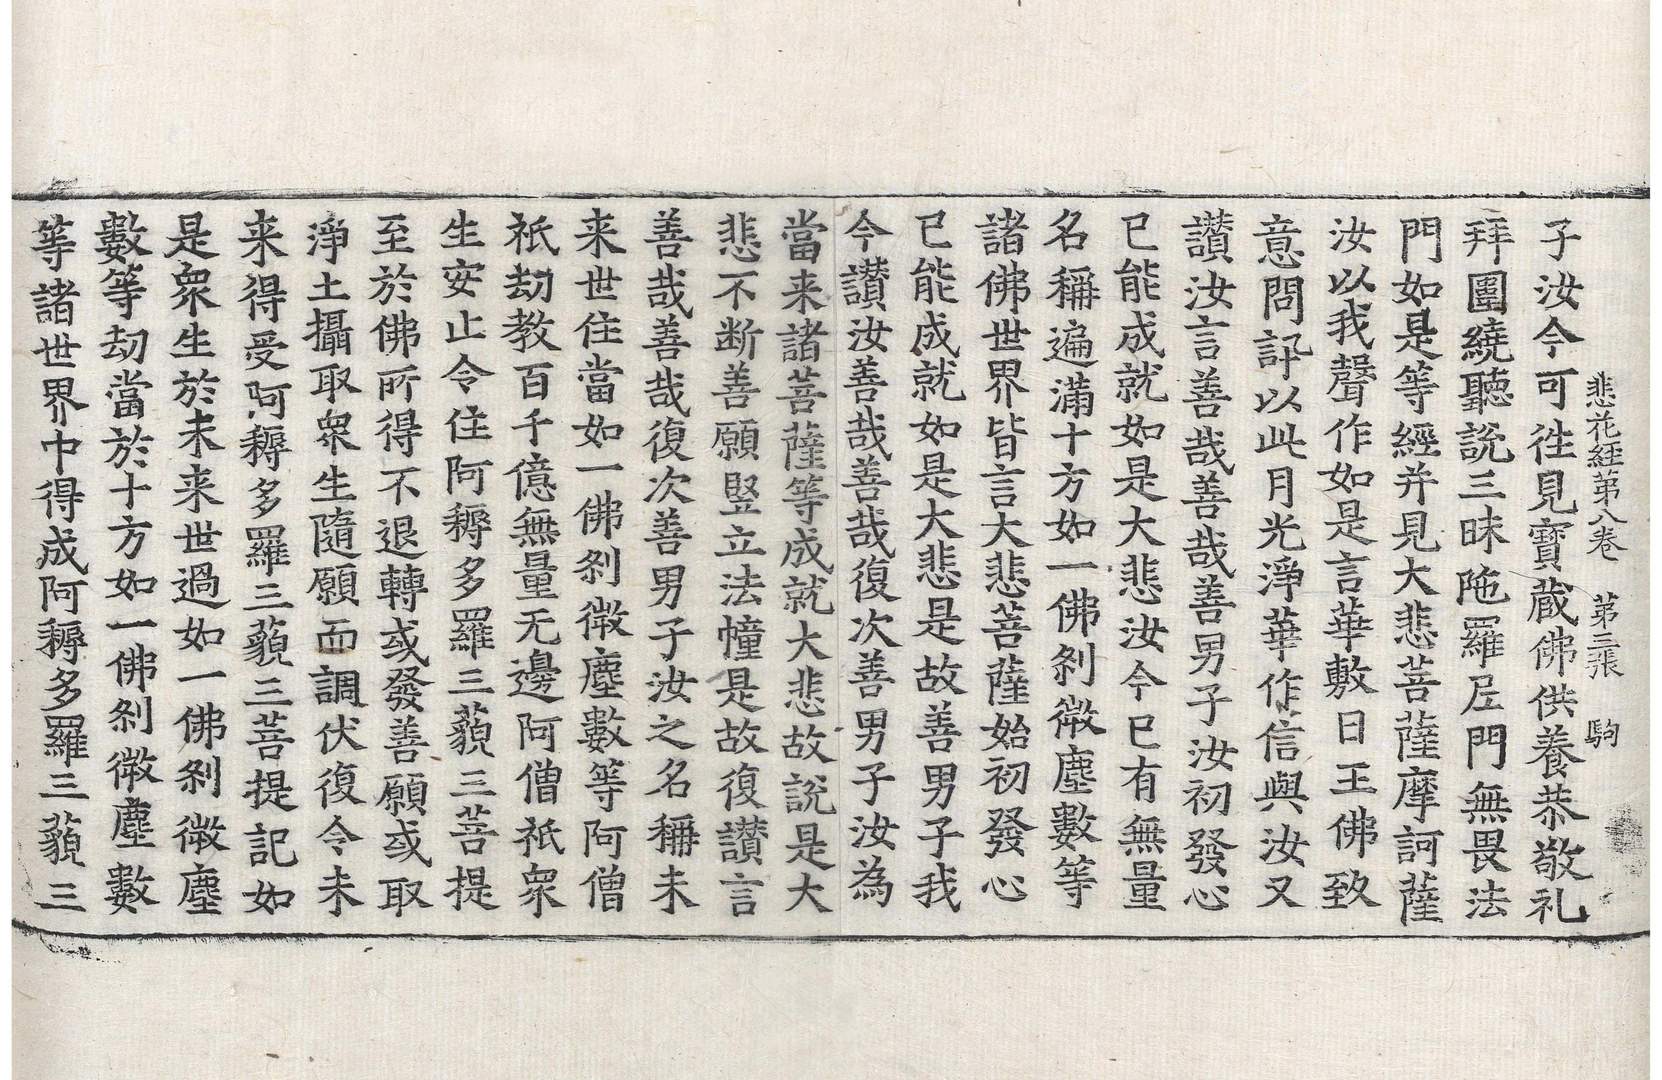 悲花経第八卷　第三張　駒
子汝今可往見寶蔵佛供養恭敬礼
拜圍繞聽說三昧陁羅尼門無畏法
門如是等經并見大悲菩薩摩訶薩
汝以我聲作如是言華敷日王佛致
意問訊以此月光淨華作信與汝又
讃汝言善哉善哉善男子汝初發心
已能成就如是大悲汝今已有無量
名稱遍滿十方如一佛剎微塵數等
諸佛世界皆言大悲菩薩始初發心
已能成就如是大悲是故善男子我
今讃汝善哉善哉復次善男子汝為
當来諸菩薩等成就大悲故說是大
悲不断善願竪立法幢是故復讃言
善哉善哉復次善男子汝之名稱未
来世住當如一佛剎微塵數等阿僧
祇劫教百千億無量无邊阿僧祇衆
生安止令住阿耨多羅三藐三菩提
至於佛所得不退轉或發善願或取
淨土攝取衆生隨願而調伏復令未
来得受阿耨多羅三藐三菩提記如
是衆生於未来世過如一佛剎微塵
數等劫當於十方如一佛剎微塵數
等諸世界中得成阿耨多羅三藐三